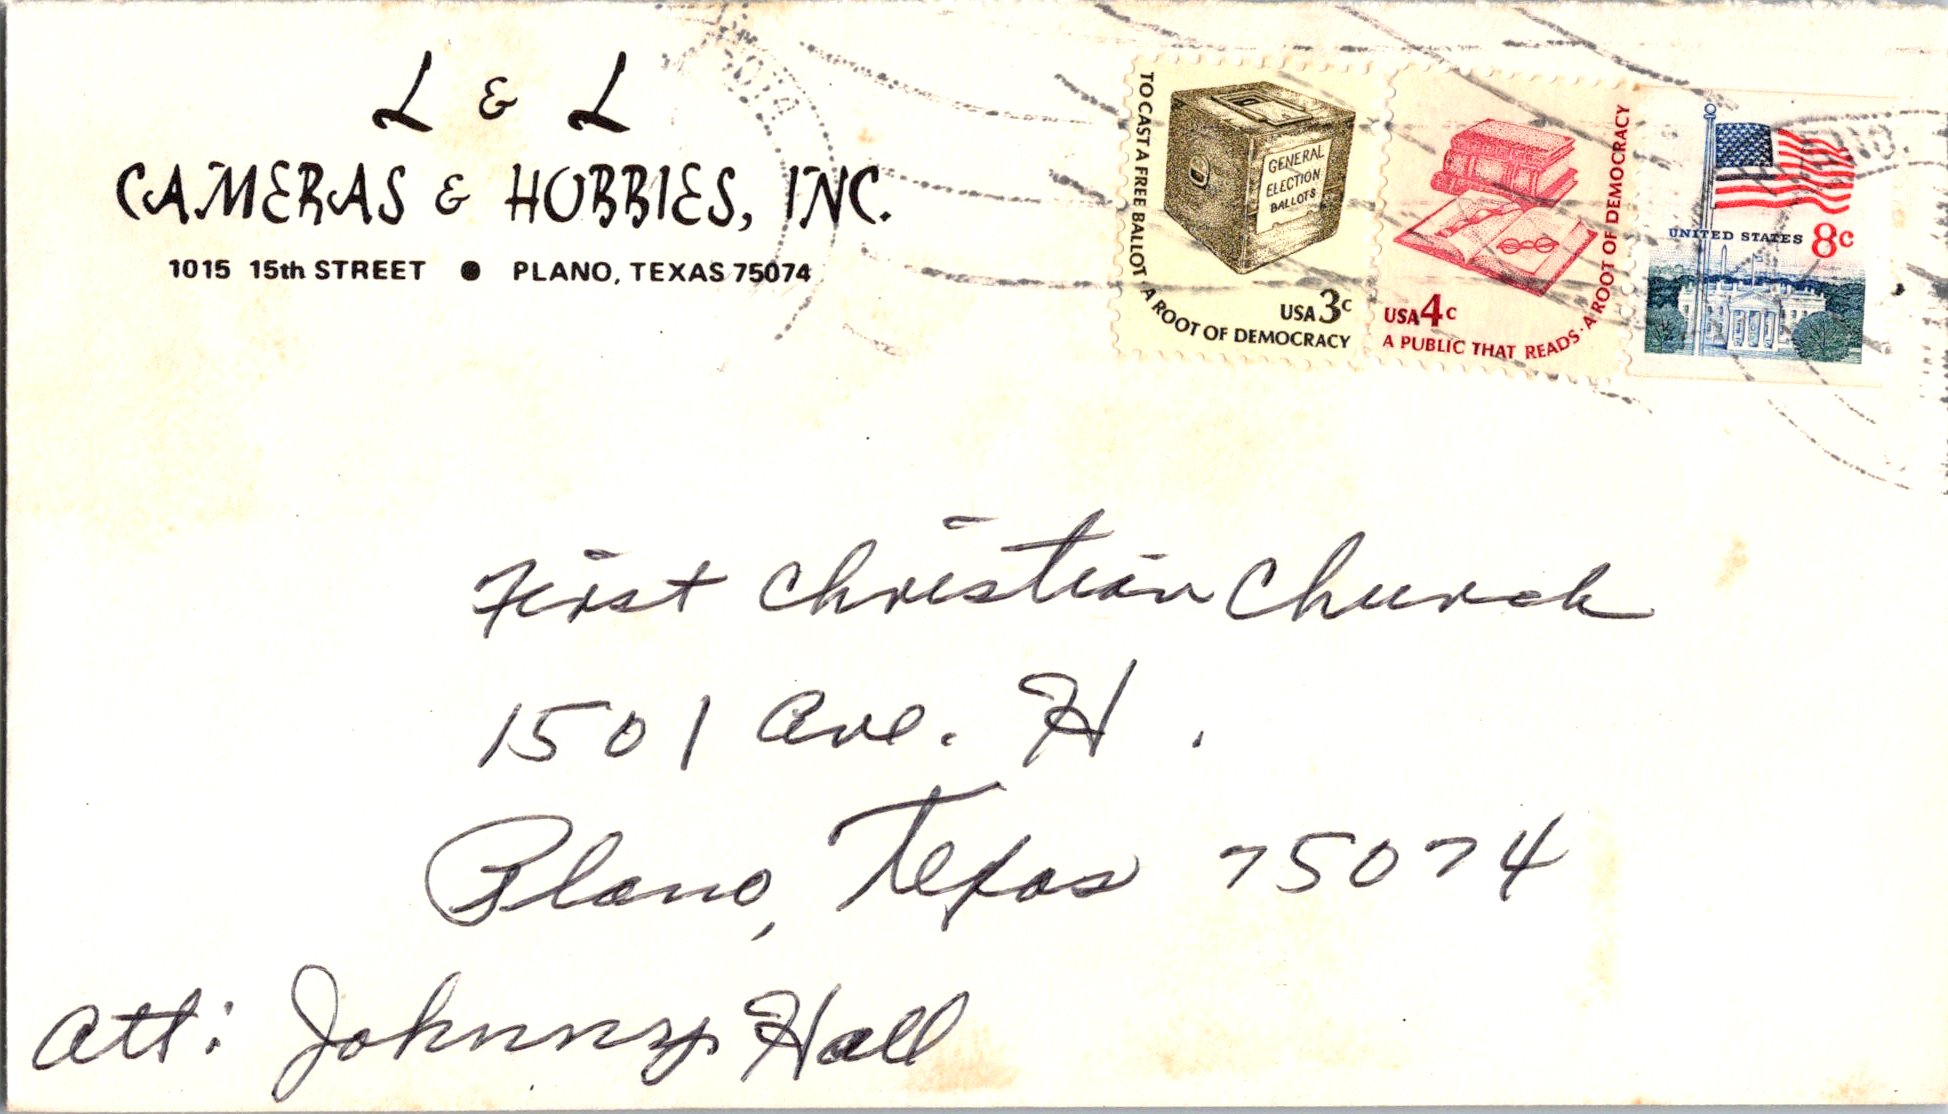 L & L
CAMERAS & HOBBIES, INC.
1015 15th STREET ● PLANO, TEXAS 75074
TO CAST A FREE BALLOT A ROOT OF DEMOCRACY
GENERAL
ELECTION
BALLOTS
USA 3c
USA 4c
A PUBLIC THAT READS · A ROOT OF DEMOCRACY
UNITED STATES 8c
First Christian Church
1501 Ave. H.
Plano, Texas 75074
Att: Johnny Hall